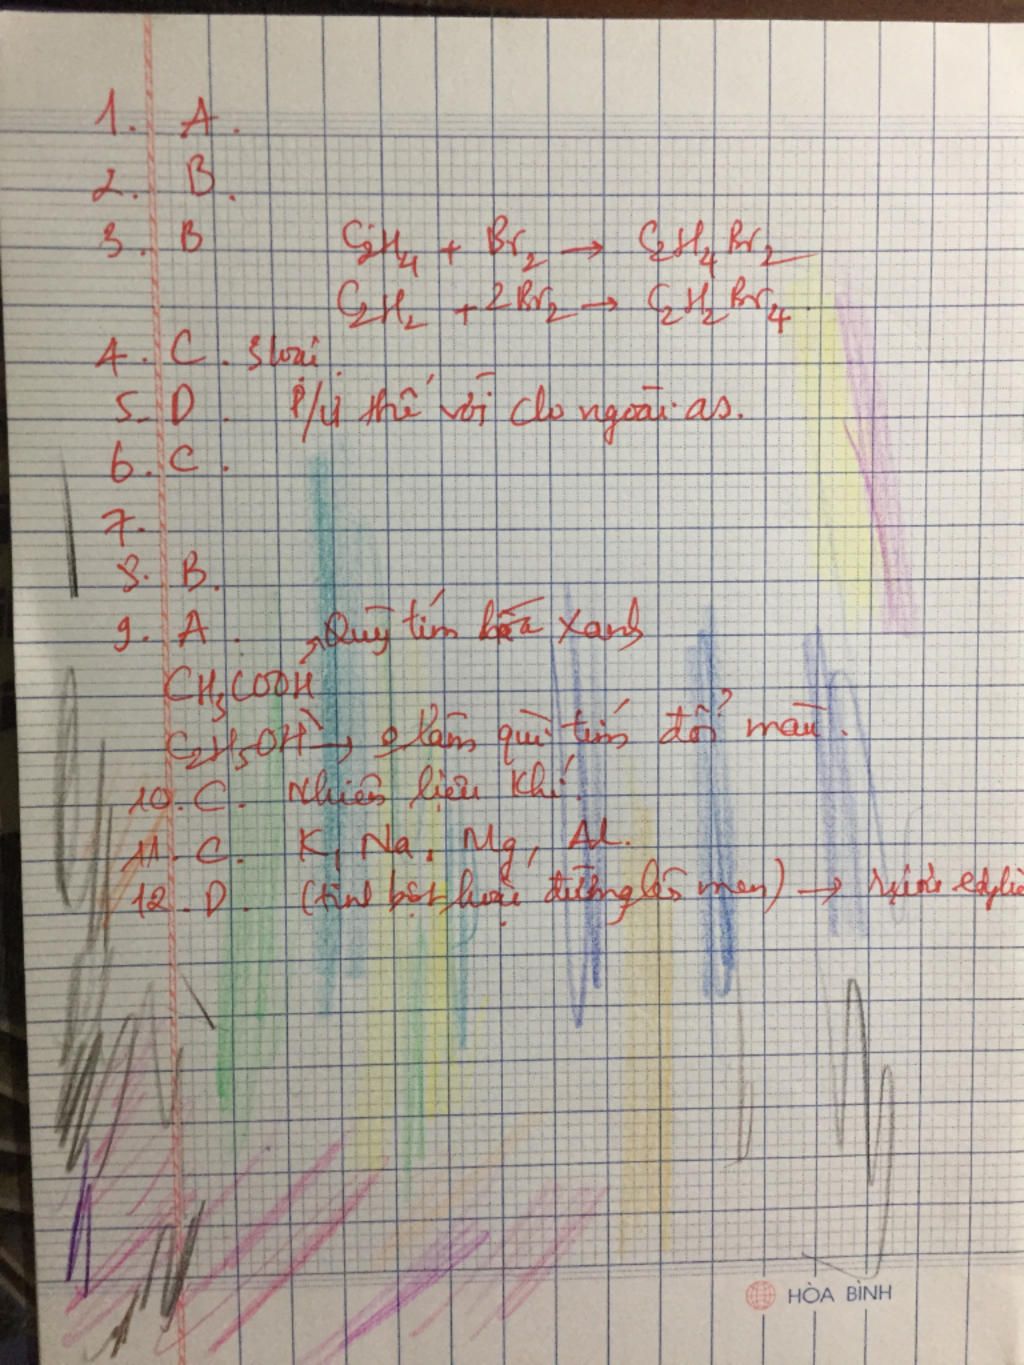 1. A.
2. B.
3. B C2H4 + Br2 → C2H4Br2
C2H2 + 2Br2 → C2H2Br4.
4. C. 3 loại.
5. D. P/ứ thế với clo ngoài as.
6. C.
7.
8. B.
9. A. Quỳ tím hóa xanh
CH3COOH
C2H5OH → làm quì tím đổi màu.
10. C. Nhiên liệu khí.
11. C. K, Na, Mg, Al.
12. D. (tinh bột hoặc đường lên men) → rượu
HÒA BÌNH